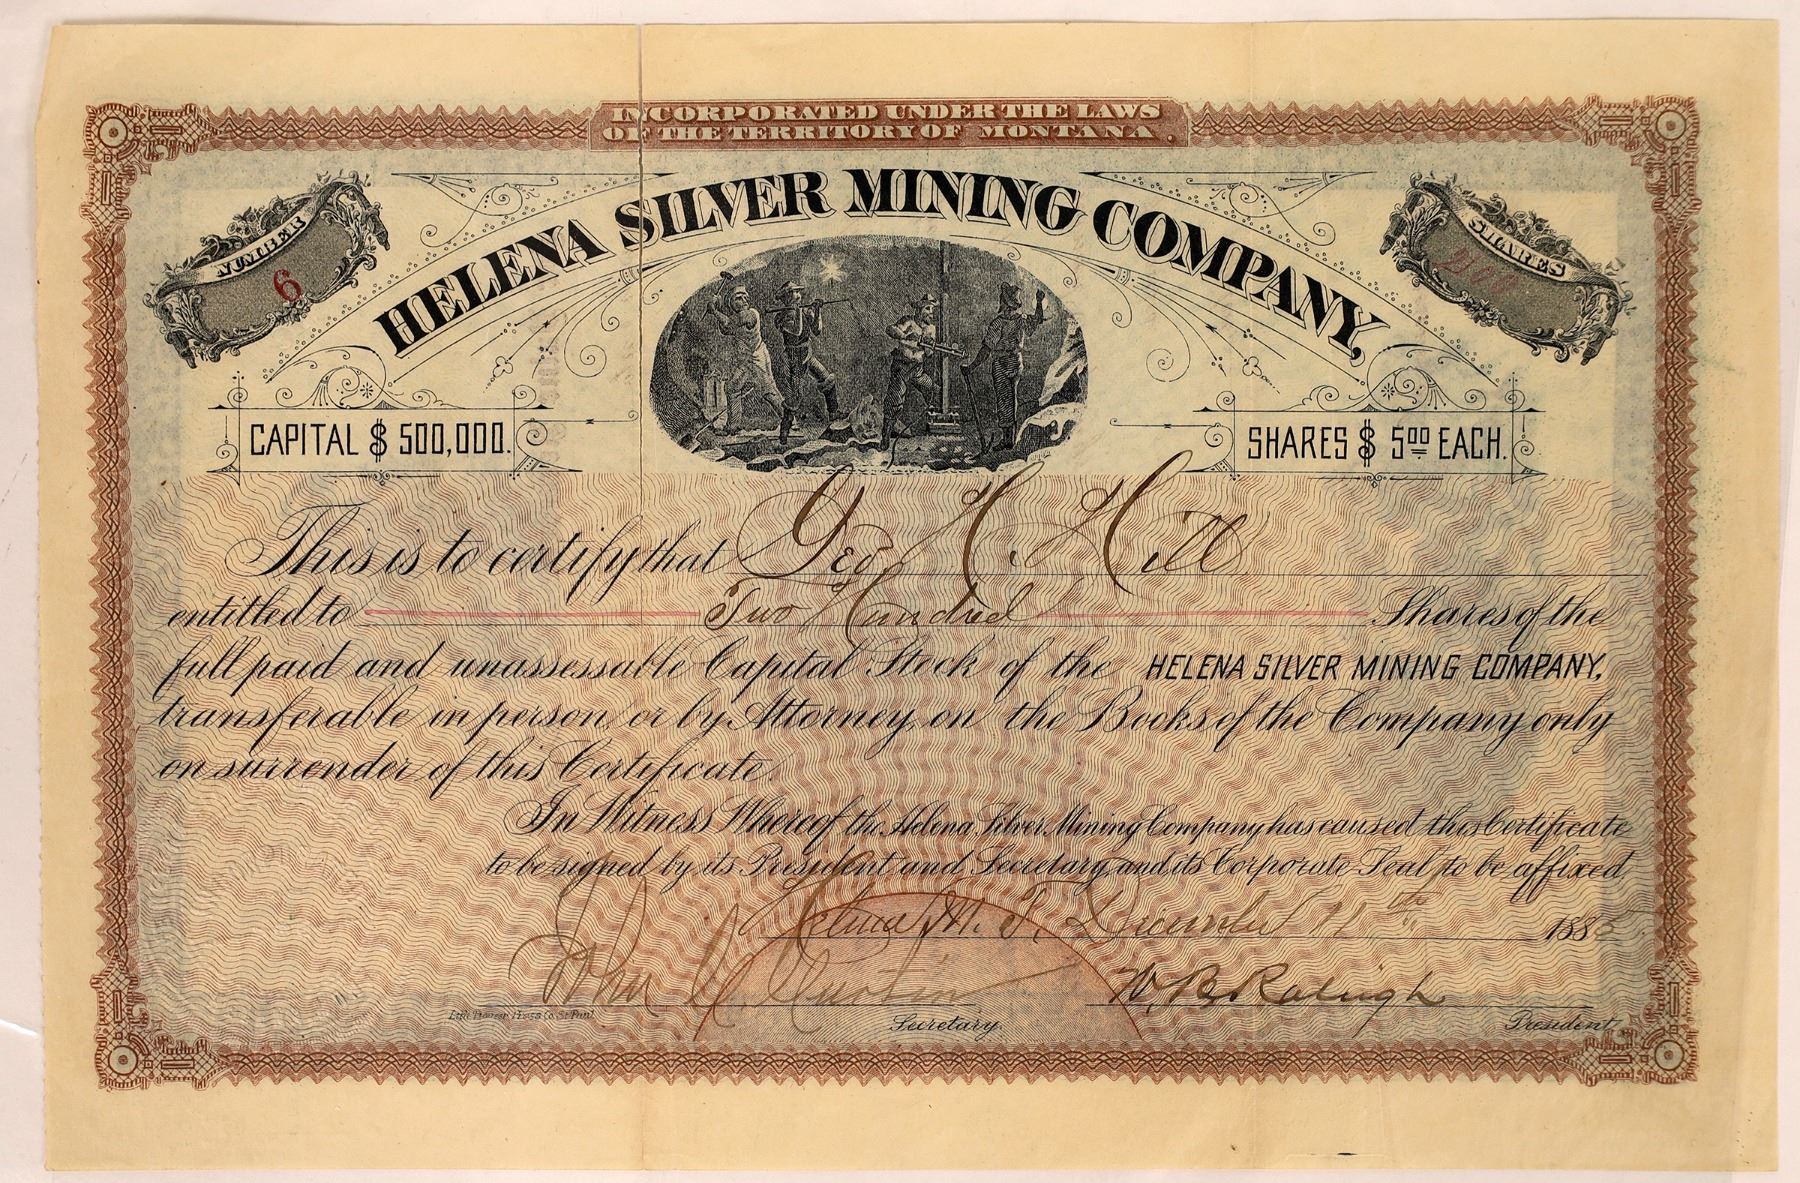 INCORPORATED UNDER THE LAWS
OF THE TERRITORY OF MONTANA.
NUMBER
6
HELENA SILVER MINING COMPANY,
SHARES
200
CAPITAL $ 500,000.
SHARES $ 500 EACH.
This is to certify that Geo. H. Hill
entitled to Two Hundred Shares of the
full paid and unassessable Capital Stock of the HELENA SILVER MINING COMPANY,
transferable in person or by Attorney on the Books of the Company only
on surrender of this Certificate.
In Witness Whereof the Helena Silver Mining Company has caused this Certificate
to be signed by its President and Secretary, and its Corporate Seal to be affixed
Helena M. T. December 11th 1885
John W. B. Raleigh
Lith Pioneer Press Co. St. Paul
Secretary.
President.